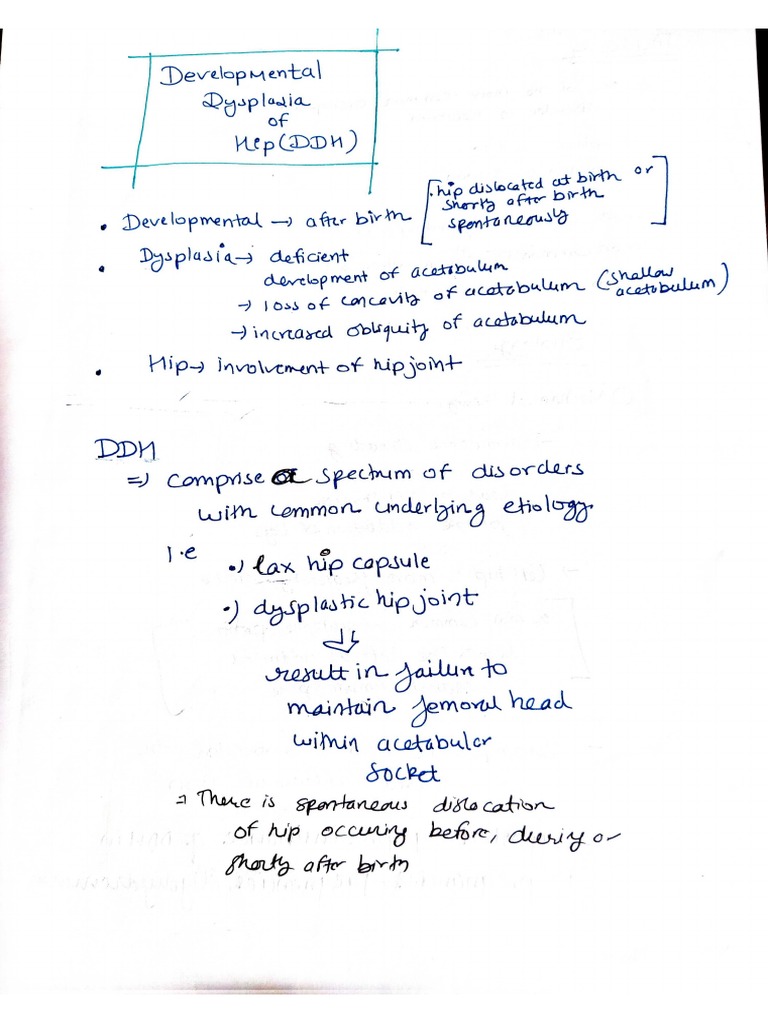 Developmental
Dysplasia
of
Hip (DDH)
• Developmental → after birth [hip dislocated at birth or
shortly after birth
spontaneously]
• Dysplasia → deficient
development of acetabulum
→ loss of concavity of acetabulum (shallow
acetabulum)
→ increased obliquity of acetabulum
• Hip → involvement of hip joint
DDH
⇒ comprise of spectrum of disorders
with common underlying etiology
i.e
•) lax hip capsule
•) dysplastic hip joint
⇓
result in failure to
maintain femoral head
within acetabular
socket
⇒ There is spontaneous dislocation
of hip occuring before, during or
shortly after birth